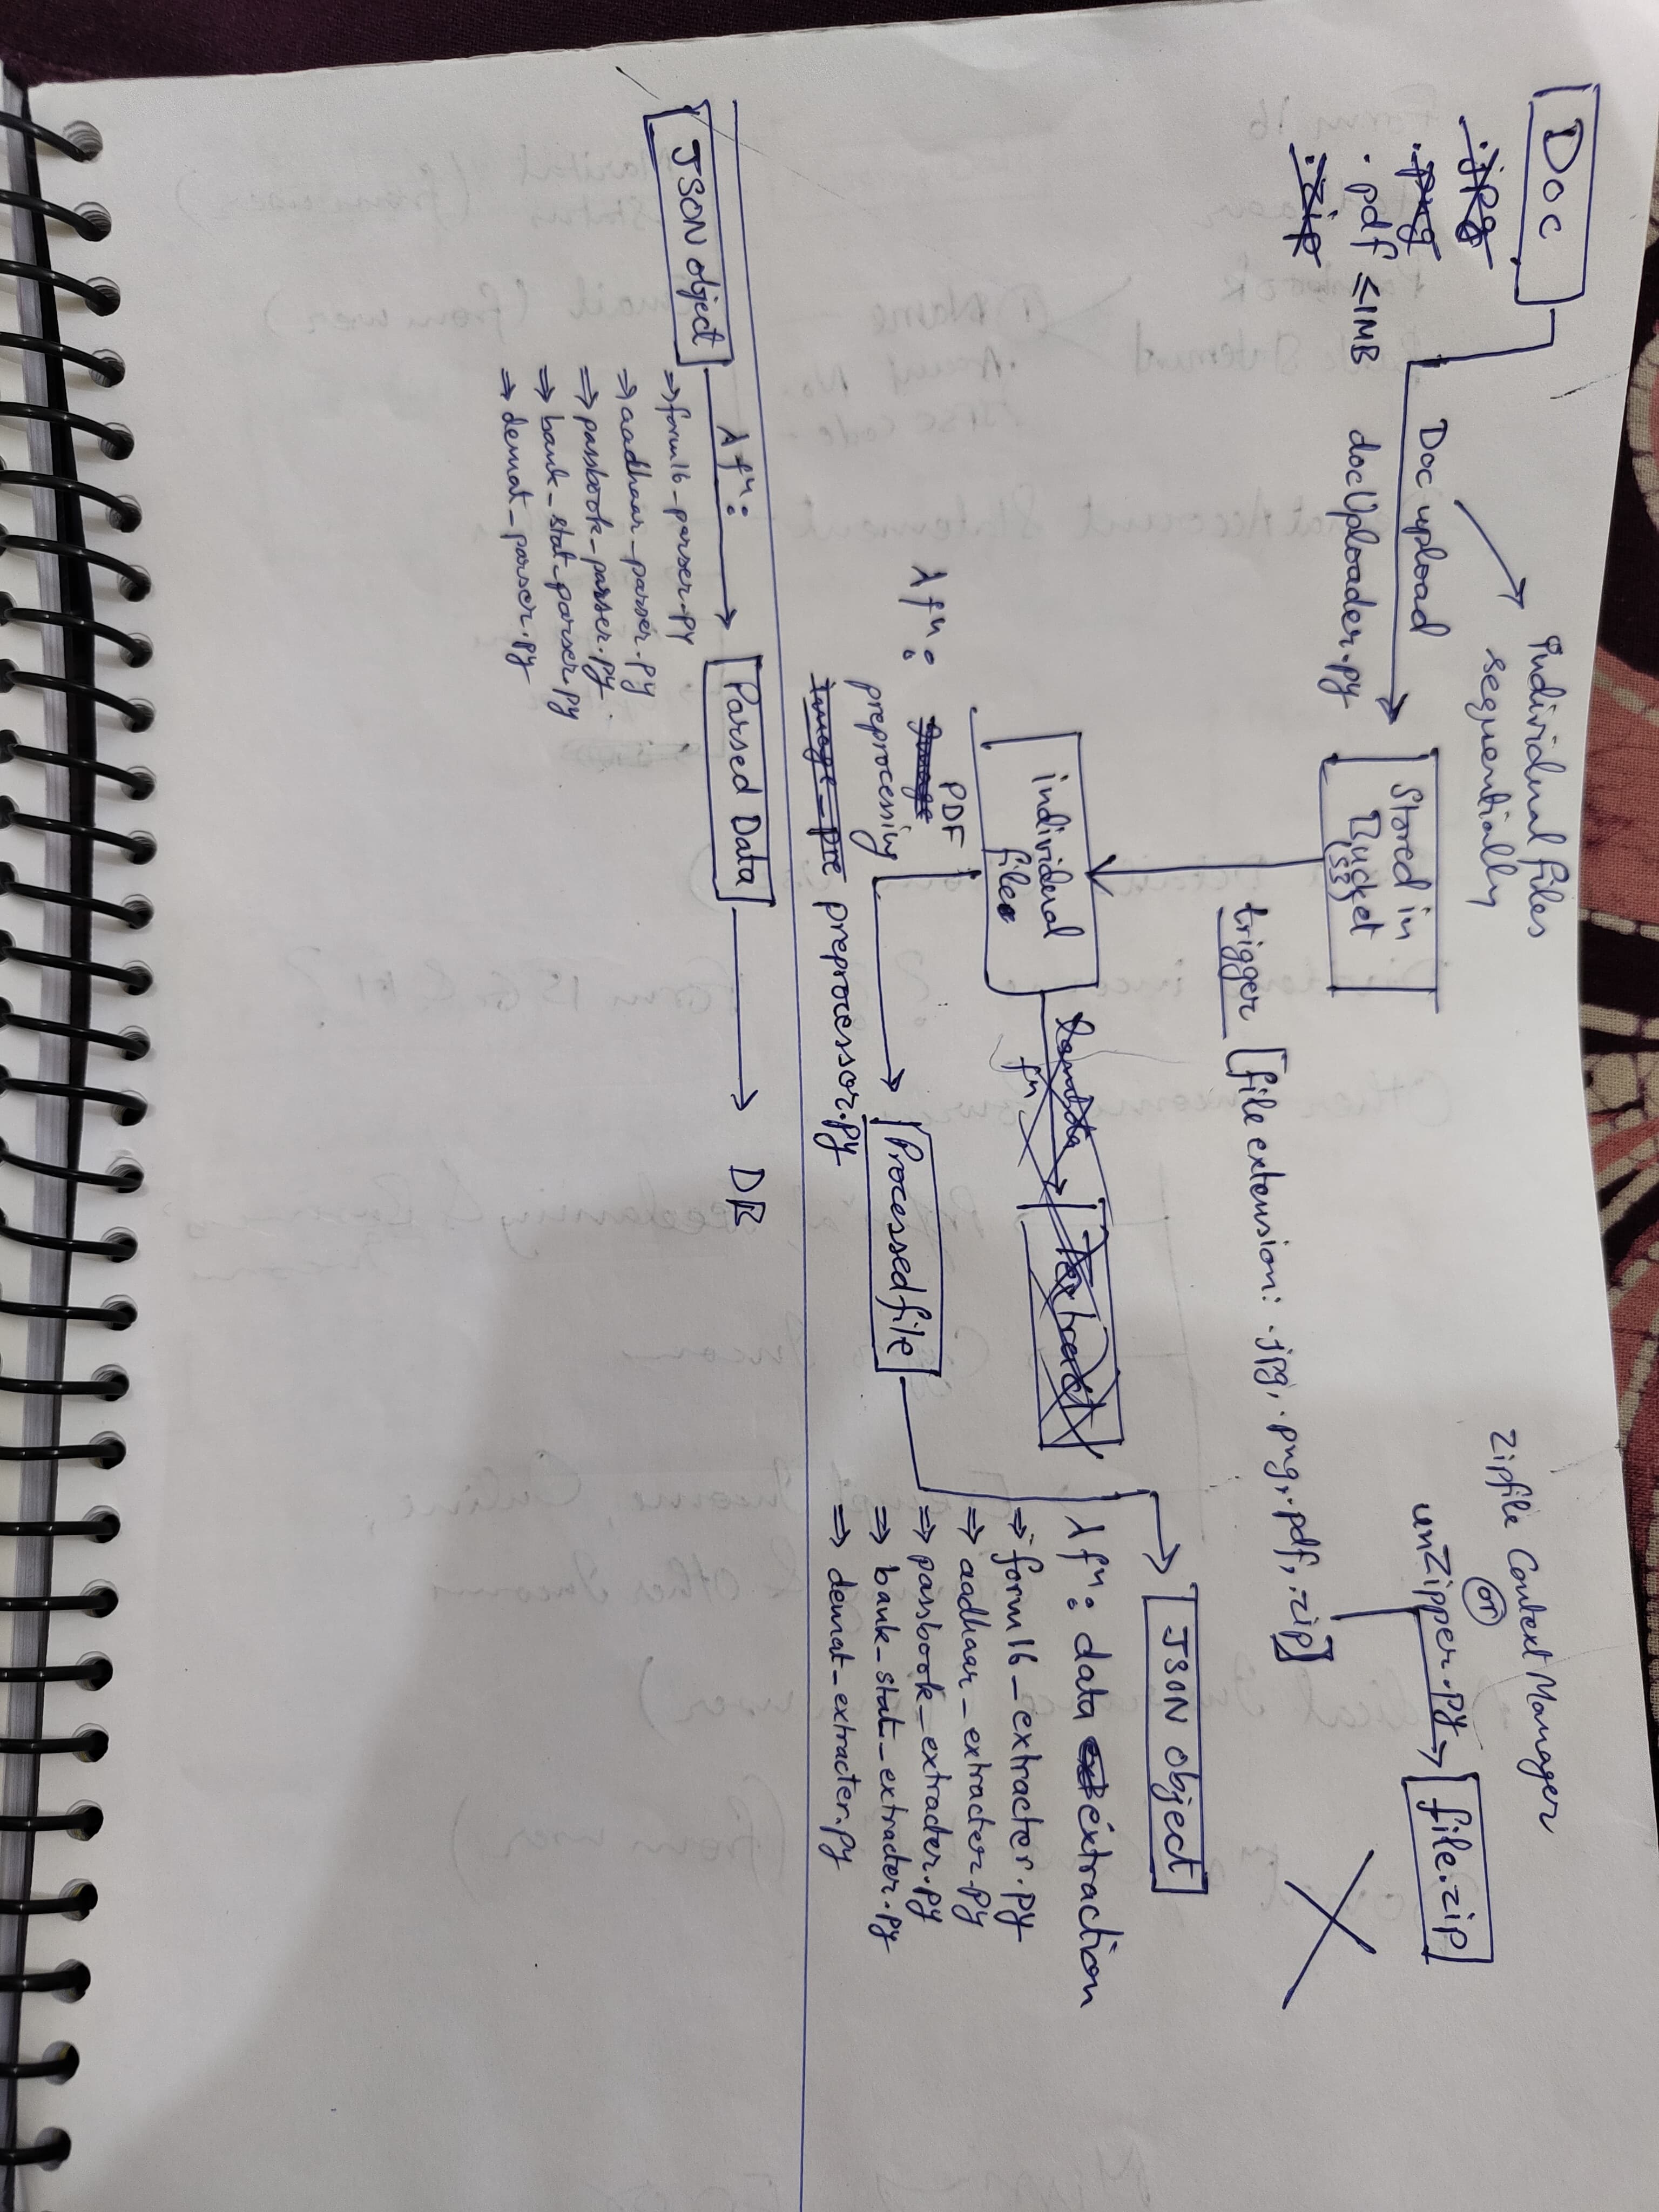 Doc
.jpg
.png
.pdf ≤1MB
.zip
Doc upload
docUploader.py
Individual files
sequentially
Stored in
Bucket
(S3)
Zipfile Context Manager
or
unZipper.py
file.zip
trigger [file extension: .jpg, .png, .pdf, .zip]
individual
file
lambda
fn
Textract
λ fn:
PDF
Image
preprocessing
Image_pre preprocessor.py
Processed file
JSON object
λ fn: data extraction
⇒ form16_extracter.py
⇒ aadhaar_extracter.py
⇒ passbook_extracter.py
⇒ bank_stat_extracter.py
⇒ demat_extracter.py
JSON object
λ fn:
⇒ form16_parser.py
⇒ aadhaar_parser.py
⇒ passbook_parser.py
⇒ bank_stat_parser.py
⇒ demat_parser.py
Parsed Data
DB